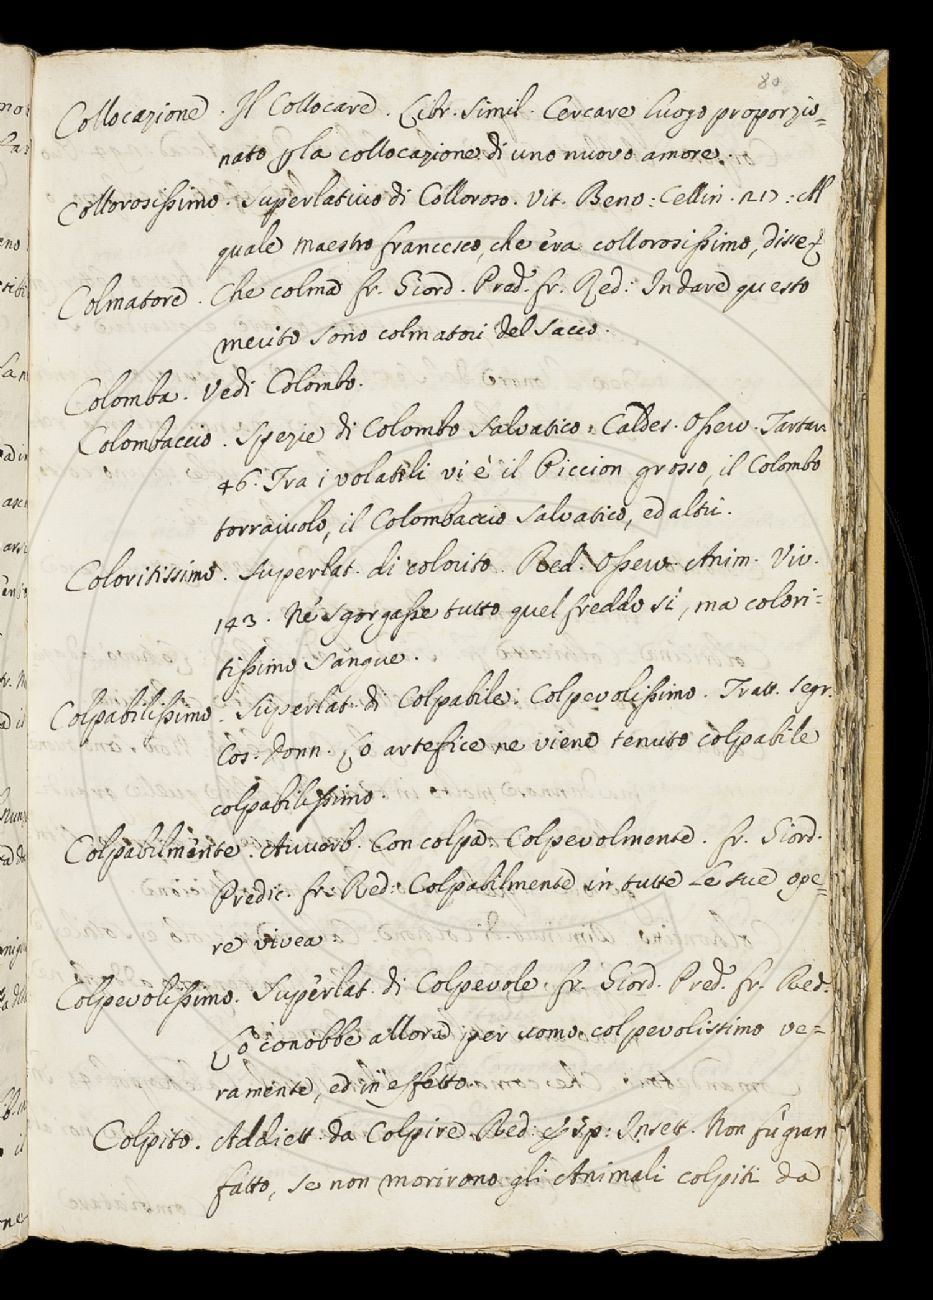 80
Collocazione. Il Collocare. Libr. Simil. Cercare luogo proporzio=
nato p la collocazione di uno nuovo amore.
Collorosissimo. Superlativo di Colloroso. Vit. Benv: Cellin. 217: Al
quale maestro francesco, che era collorosissimo, disse &
Colmatore. Che colma fr. Giord. Pred. fr. Red: In dare questo
merito sono colmatori del sacco.
Colomba. Vedi Colombo.
Colombaccio. Spezie di Colombo Salvatico. Caldes. Osserv. Tartar
46. Tra i volatili vi è il Piccion grosso, il Colombo
torraiuolo, il Colombaccio Salvatico, ed altri.
Coloritissimo. Superlat. di colorito. Red. Osserv. Anim. Viv.
143. Nè sgorgasse tutto quel freddo sì, ma colori=
tissimo sangue.
Colpabilissimo. Superlat. di Colpabile: Colpevolissimo. Tratt. segr.
Cos. Donn. Lo artefice ne viene tenuto colpabile
colpabilissimo.
Colpabilmente. Avverb. Con colpa. Colpevolmente. fr. Giord.
Predic. fr. Red: Colpabilmente in tutte le sue ope=
re vivea.
Colpevolissimo. Superlat. di Colpevole. fr. Giord. Pred. fr. Red:
Lo conobbe allora per uomo colpevolissimo ve=
ramente, ed in effetto.
Colpito. Addiett. da Colpire. Red: Esp: Insett. Non fu gran
fatto, se non morirono gli Animali colpiti da